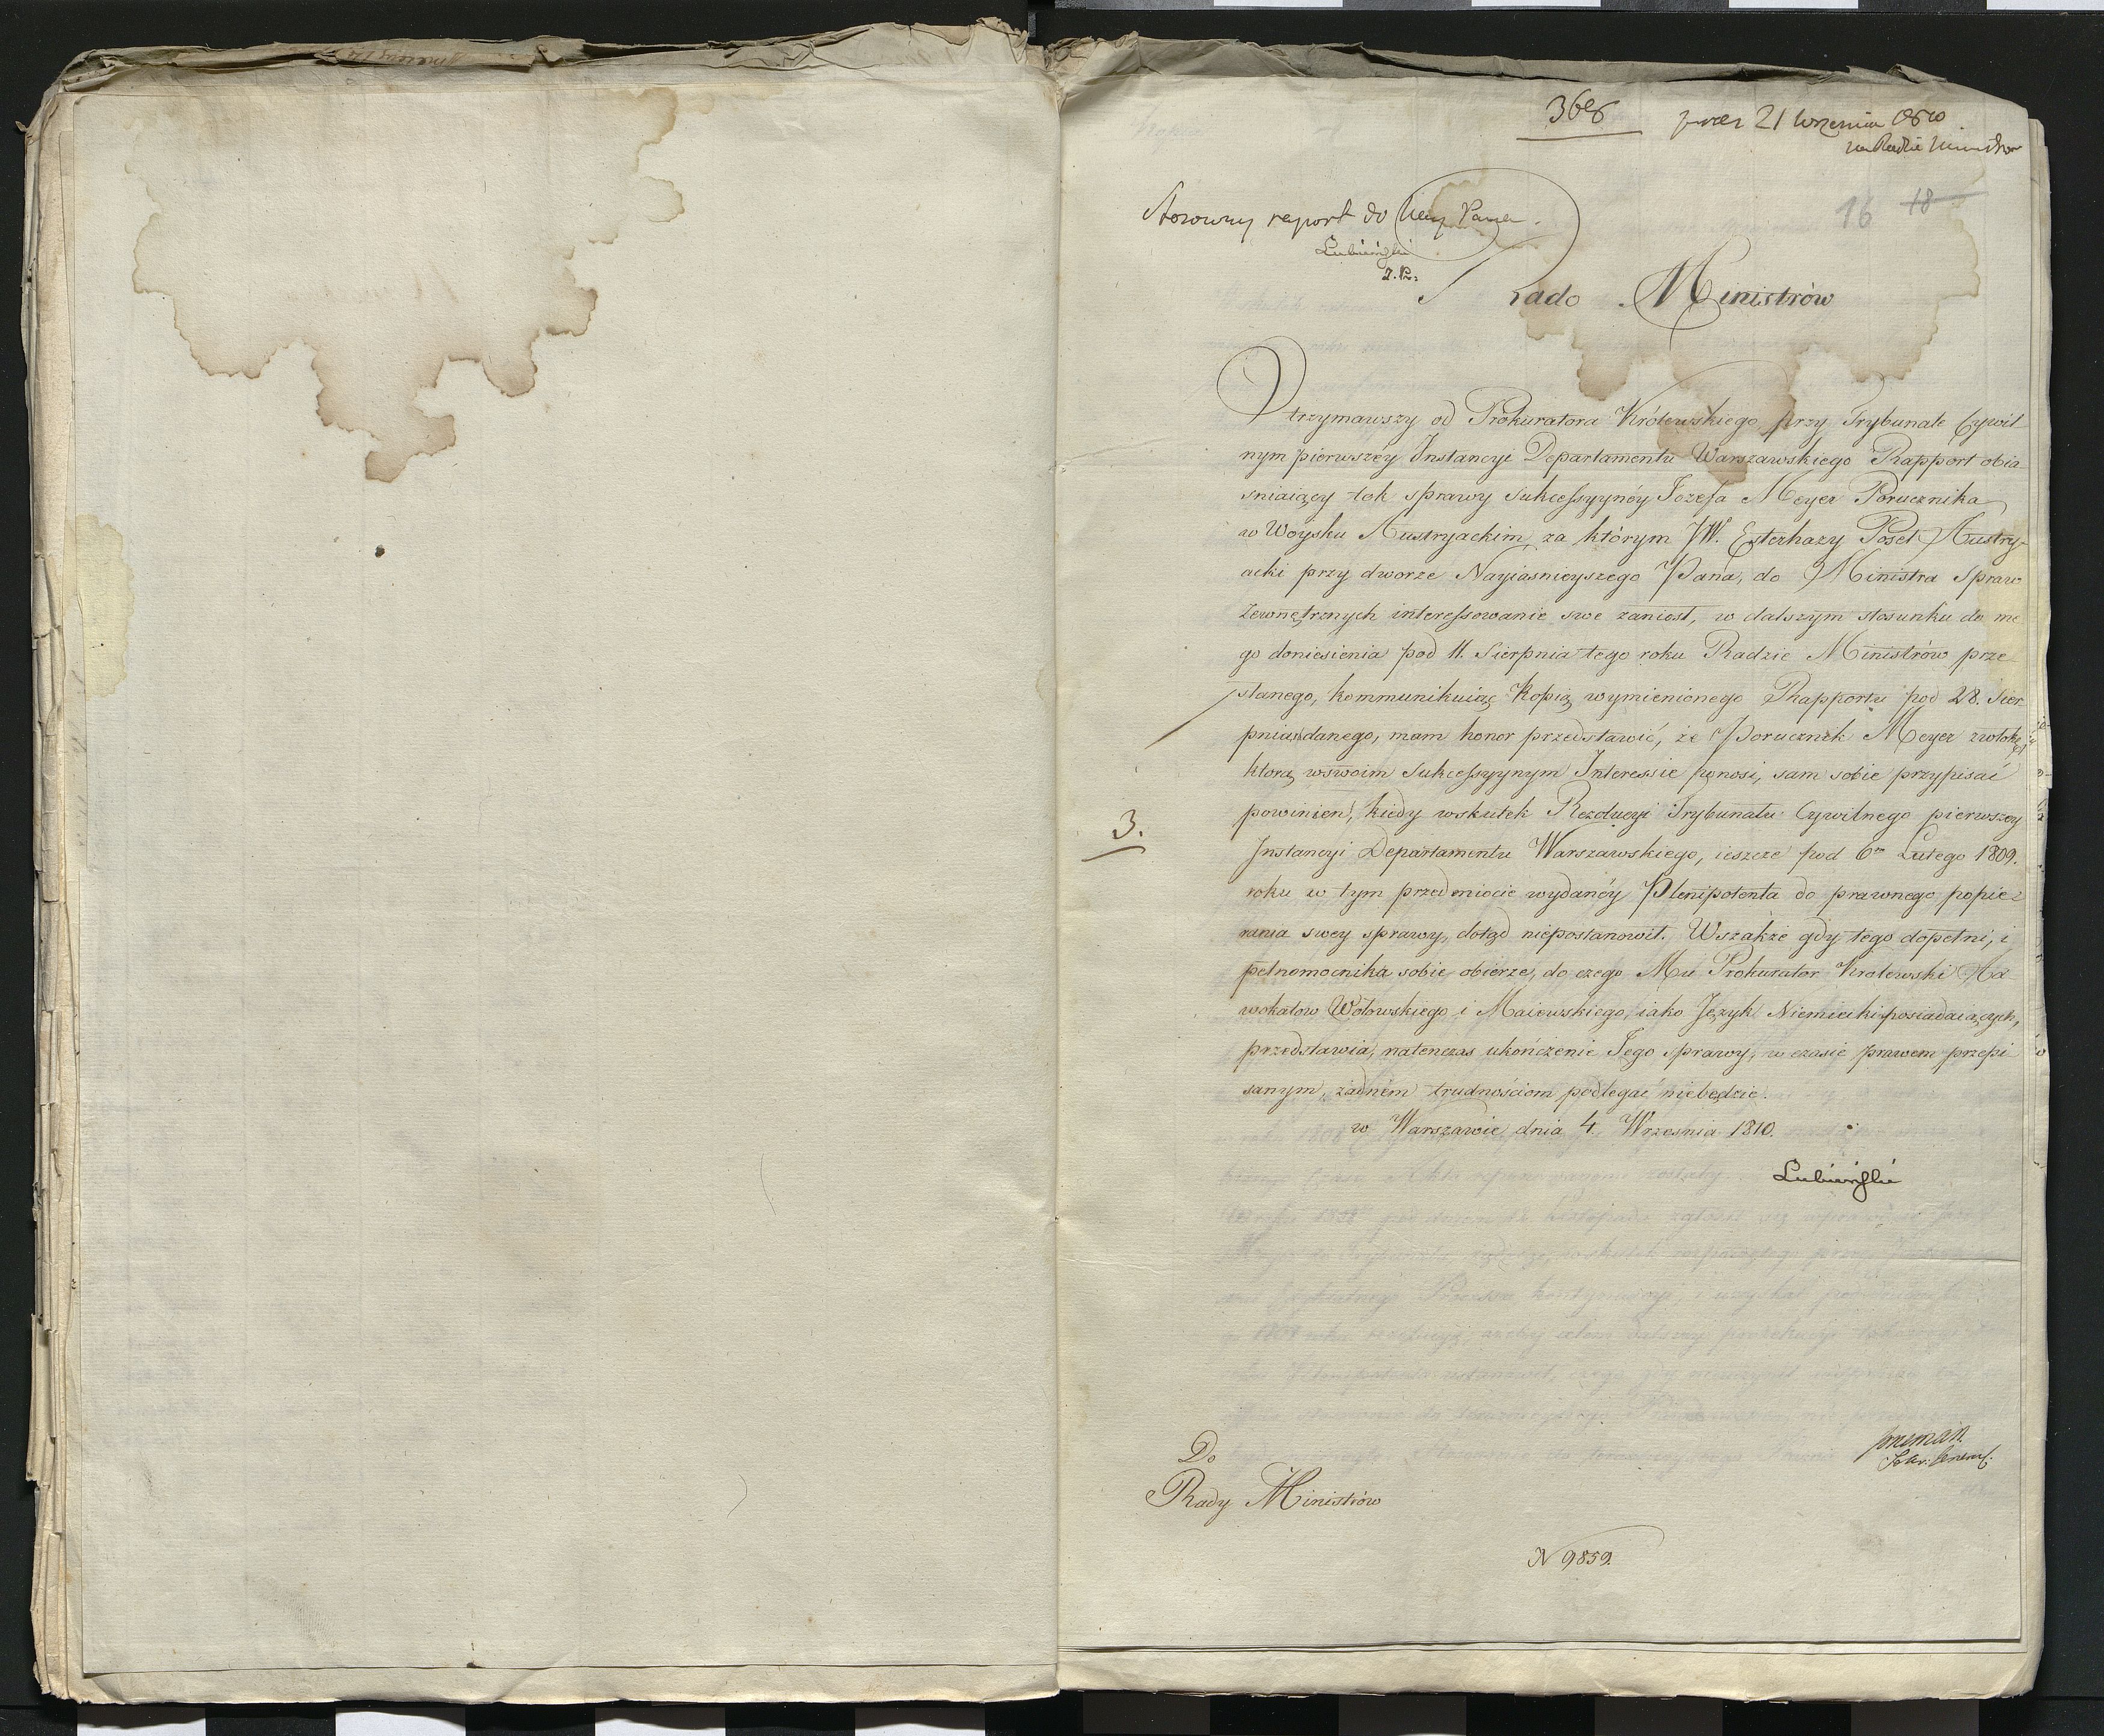 3608
21 Września 1810
na Radzie Ministrów
Stosowny raport do Nay. Pana.
Lubieński
16 18
Rado Ministrów
Otrzymawszy od Prokuratora Królewskiego przy Trybunale Cywil
nym pierwszéy Instancyi Departamentu Warszawskiego Rapport obia
sniaiący tok sprawy Sukcessyynéy Jozefa Meyer Porucznika
w Woysku Austryackim, za którym JW. Esterhazy Poseł Austry-
acki przy dworze Nayiasnieyszego Pana, do Ministra Spraw
Zewnętrznych interessowanie swe zaniosł, w dalszym stosunku do me
go doniesienia pod 11. Sierpnia tego roku Radzie Ministrów prze
słanego, kommunikuiąc Kopią wymienionego Rapportu pod 28. Sier
pnia danego, mam honor przedstawić, że Porucznik Meyer zwłokę
ktorą wswoim Sukcessyynym Interessie ponosi, sam sobie przypisać
powinien, kiedy wskutek Rezolucyi Trybunału Cywilnego pierwszey
Instancyi Departamentu Warszawskiego, ieszcze pod 6m Lutego 1809.
roku w tym przedmiocie wydanéy Plenipotenta do prawnego popie-
rania swey sprawy, dotąd niepostanowił. Wszakże gdy tego dopełni, i
pełnomocnika sobie obierze, do czego Mu Prokurator Krolewski Ad
wokatow Wołowskiego i Maiewskiego, iako Język Niemiecki posiadaiących,
przedstawia, natenczas ukończenie Jego sprawy, w czasie prawem przepi
sanym, żadném trudnościom podlegać niebędzie.
w Warszawie dnia 4. Września 1810.
3.
Lubieński
Do
Rady Ministrów
Sekr: General.
N 9859.